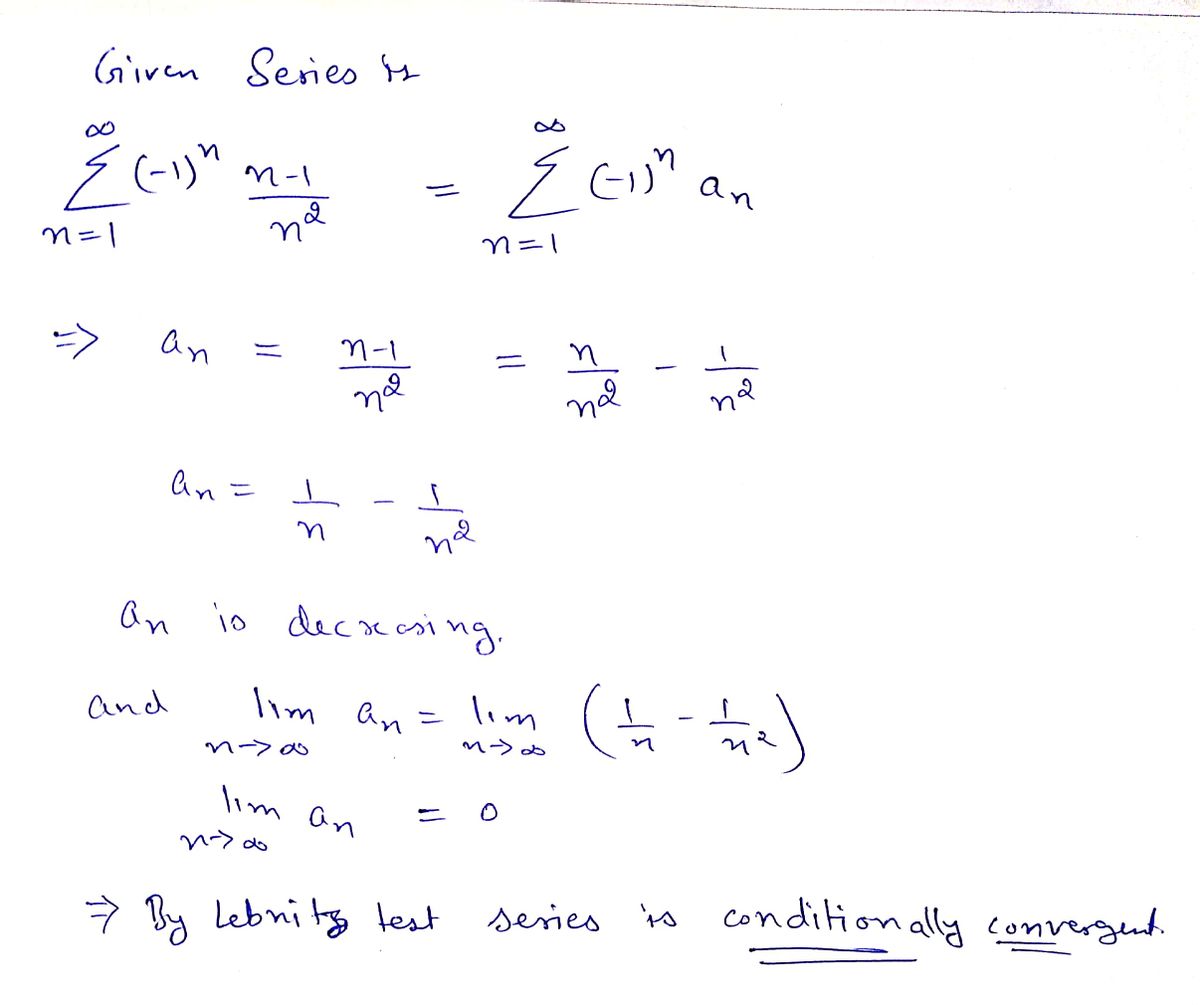 Given Series is
∞ ∑ n=1 (-1)^n (n-1)/n^2 = ∞ ∑ n=1 (-1)^n a_n
=> a_n = (n-1)/n^2 = n/n^2 - 1/n^2
a_n = 1/n - 1/n^2
a_n is decreasing.
and lim n->∞ a_n = lim n->∞ (1/n - 1/n^2)
lim n->∞ a_n = 0
=> By Lebnitz test series is conditionally convergent.